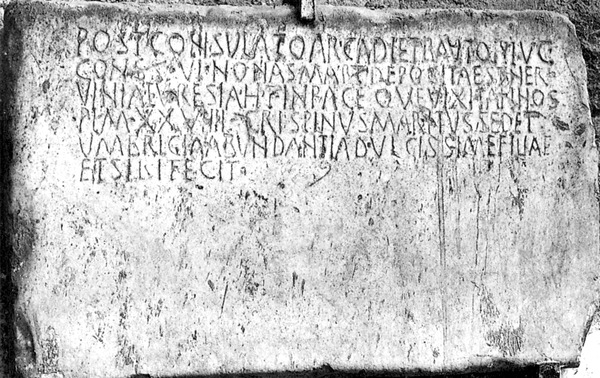 POST CONSULATO ARCADI ET BAVTO VV CC
CONSS VI NONAS MART DEPOSITA EST NER
VINIA
IN PACE QVE VIXIT ANNOS
PL M XXVIII CRISPINVS MARITVS SED ET
VMBRICIA MVNDANTIA DVLCISSIME FILIAE
ET SIBI FECIT